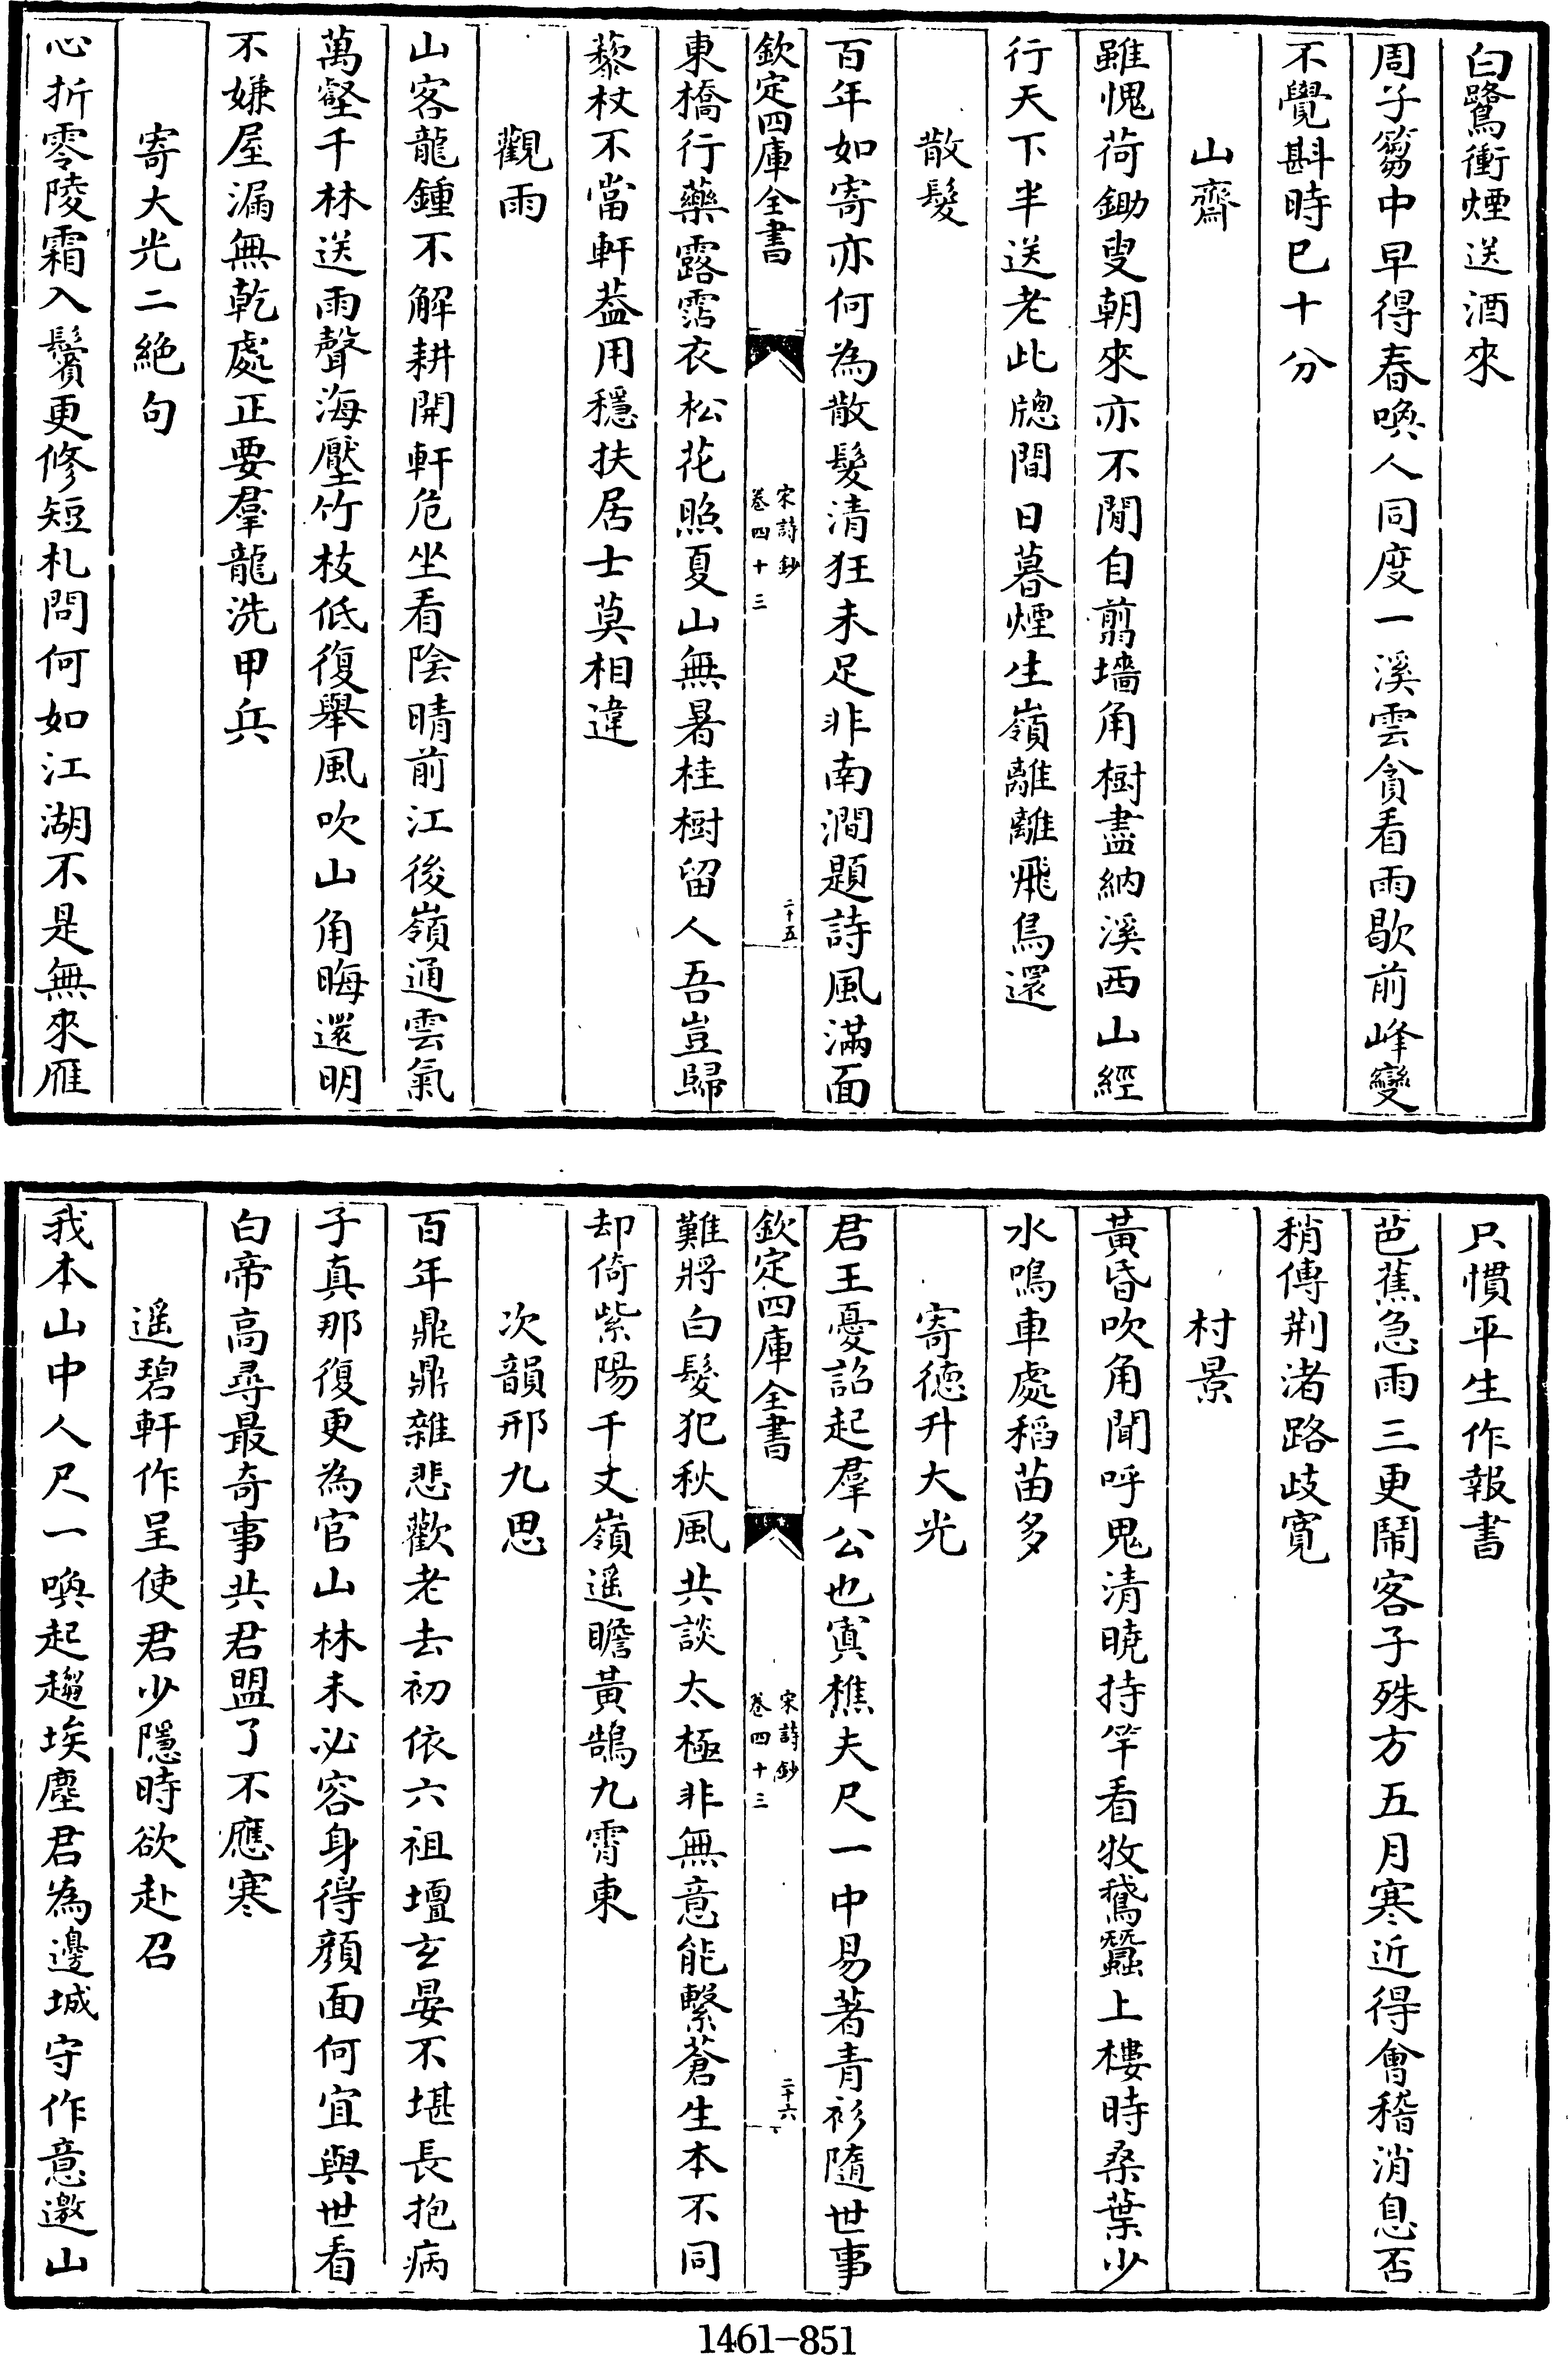 白鷺衝煙送酒來
周子篘中早得春喚人同度一溪雲貪看雨歇前峰變
不覺斟時已十分
山齋
雖愧荷鋤叟朝來亦不閒自翦墻角樹盡納溪西山經
行天下半送老此牕間日暮煙生嶺離離飛鳥還
散髮
百年如寄亦何為散髮清狂未足非南澗題詩風滿面
欽定四庫全書
宋詩鈔
卷四十三
二十五
東橋行藥露霑衣松花照夏山無暑桂樹留人吾豈歸
藜杖不當軒葢用穩扶居士莫相違
觀雨
山客龍鍾不解耕開軒危坐看陰晴前江後嶺通雲氣
萬壑千林送雨聲海壓竹枝低復舉風吹山角晦還明
不嫌屋漏無乾處正要羣龍洗甲兵
寄大光二絶句
心折零陵霜入鬢更修短札問何如江湖不是無來雁
只慣平生作報書
芭蕉急雨三更鬧客子殊方五月寒近得會稽消息否
稍傳荆渚路歧寬
村景
黃昏吹角聞呼鬼清曉持竿看牧鵞蠶上樓時桑葉少
水鳴車處稻苗多
寄德升大光
君王憂詔起羣公也寘樵夫尺一中易著青衫隨世事
欽定四庫全書
宋詩鈔
卷四十三
二十六
難將白髮犯秋風共談太極非無意能繫蒼生本不同
却倚紫陽千丈嶺遥瞻黃鵠九霄東
次韻邢九思
百年鼎鼎雜悲歡老去初依六祖壇玄晏不堪長抱病
子真那復更為官山林未必容身得顔面何宜與世看
白帝高尋最奇事共君盟了不應寒
遥碧軒作呈使君少隱時欲赴召
我本山中人尺一喚起趨埃塵君為邊城守作意邀山
1461-851